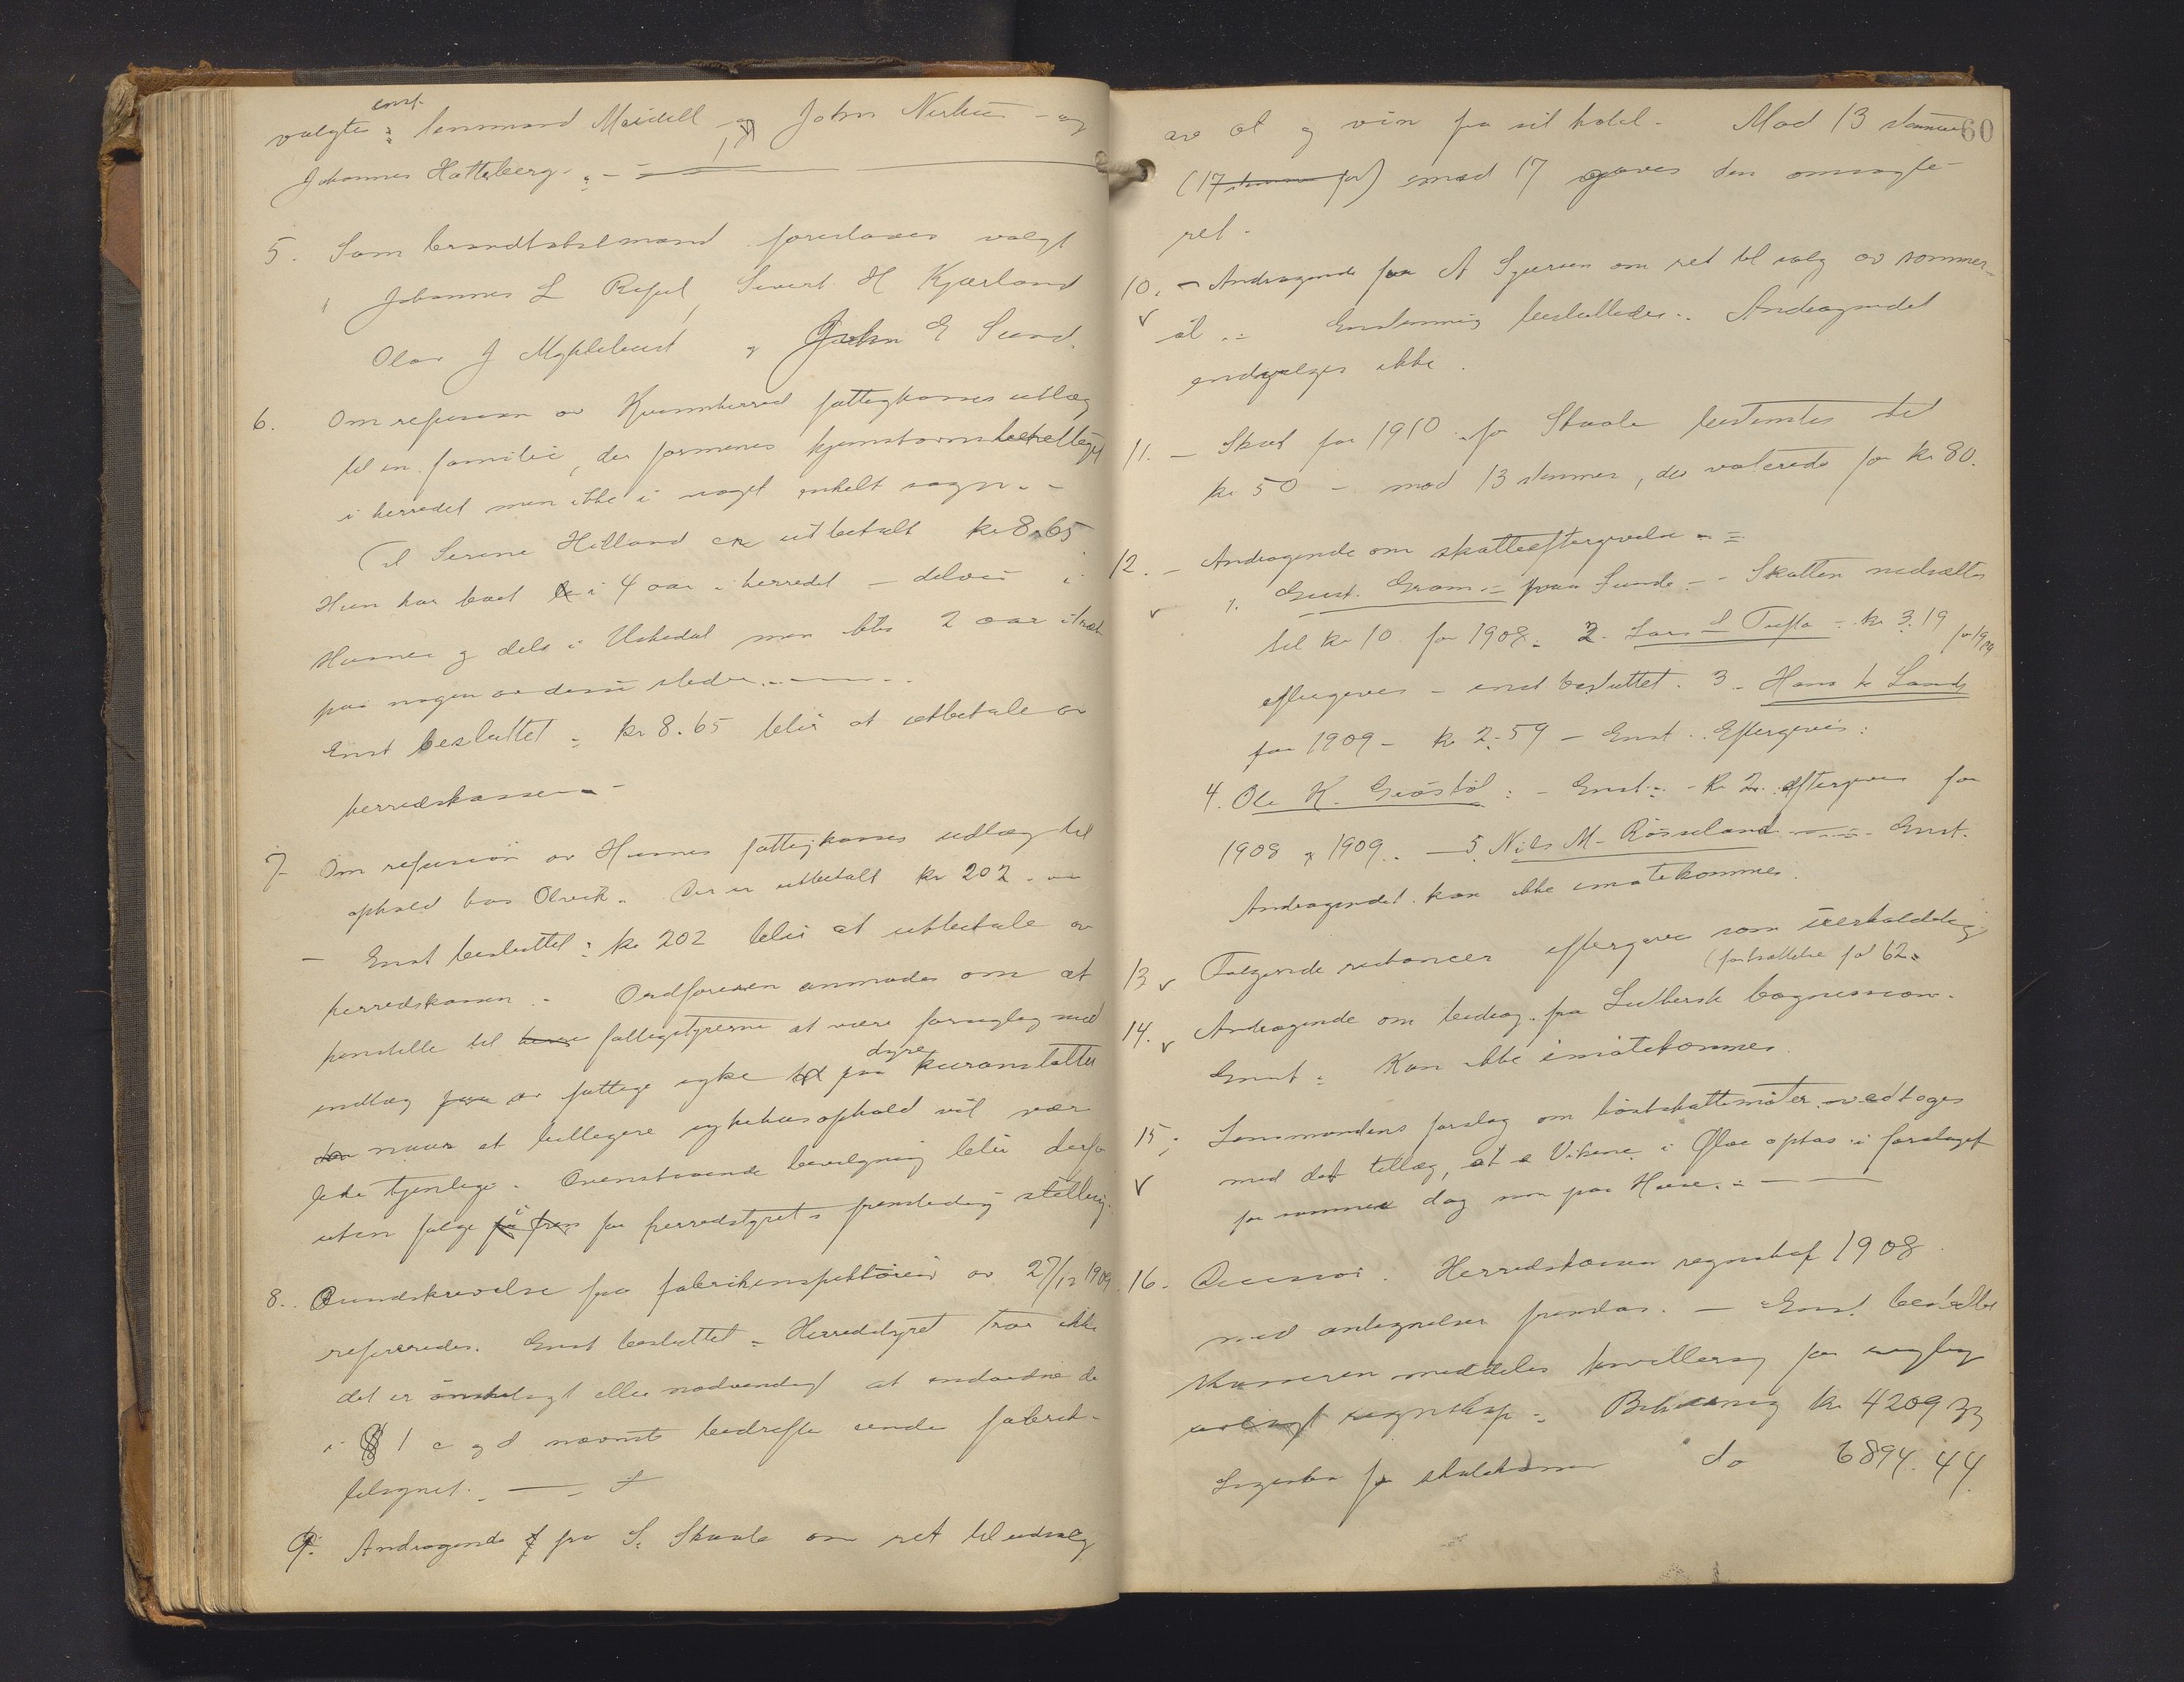 enst.
valgtes: lensmand Meidell og John Nerhus og
Johannes Hatteberg.
5. Som brandtakstmænd foresloges valgt
Johannes L Røssel, Sivert H Kjærland
Olav J Myklebust og John E Sund.
6. Om refusion av Kvinnherred fattigkasses utlæg
til en familie, der formenes hjemstavnsberettiget
i herredet men ikke i noget enkelt sogn. -
Til Serine Helland er utbetalt kr 8.65
Hun har boet i 4 aar i herredet - delvis i
Husnes og dels i Uskedal men ikke 2 aar i træk
paa nogen av disse steder.
Enst besluttet: kr 8.65 blir at utbetale av
herredskassen. -
7. Om refusion av Husnes fattigkasses utlæg til
ophold hos Olvik. Der er utbetalt kr 202. -
- Enst besluttet: kr 202 blir at utbetale av
herredskassen. - Ordføreren anmodes om at
henstille til fattigstyrerne at være forsigtig med
indlæg av fattige syke paa dyre kuranstalter
naar et billigere sykehusophold vil være
like tjenlig. Ovenstaaende bevilgning blir derfor
uten følge for herredstyrets fremtidige stilling.
8. Rundskrivelse fra fabrikinspektøren av 27/12 1909
refereredes. Enst besluttet: Herredstyret tror ikke
det er ønskeligt eller nødvendigt at indordne de
i § 1 c og d nævnte bedrifter under fabrik-
tilsynet.
9. Andragende fra S. Skaale om ret til udsalg
60
av øl og vin fra sit hotel. Mod 13 stemmer
(17 stemmer for) mod 17 gaves den omsøgte
ret.
10. - Andragende fra A Sjursen om ret til salg av sommer-
øl. Enstemmig besluttedes: Andragendet
indvilges ikke.
11. - Skat for 1910 for Skaale bestemtes til
kr 50 - mod 13 stemmer, der voterede for kr 80.
12. - Andragende om skatteeftergivelse
1. Gust. Gram paa Sunde - Skatten nedsættes
til kr 10 for 1908. 2. Lars Tufta kr 3.19 for 1909
eftergives - enst besluttet. 3. Hans Lands
for 1909 - kr 2.59 - Enst. Eftergives:
4. Ole K. : - Enst: - kr 2 eftergives for
1908 og 1909. - 5. Nils M. Røsseland - Enst.
Andragendet kan ikke imøtekommes.
13 Følgende restancer eftergives som uerholdelig
(fortsættelse fol 62.
14. Andragende om bidrag fra Luthersk
Enst: Kan ikke imøtekommes.
15. Lensmandens forslag om høstskattemøter vedtoges
med det tillæg, at Vikene i Ølve optas i forslaget
for samme dag som paa
16. Decision. Herredskassens regnskap 1908
med antegnelser fremlas. - Enst. besluttet
Kassereren meddeles kvittering for
avlagt regnskap: Beholdning kr 4209.33
Ligesaa for skolekassen do 6894.44